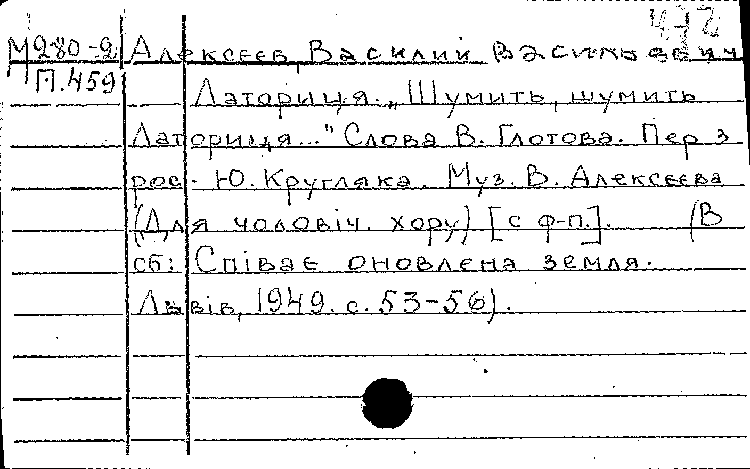 472
М 280-2 Алексеев, Василий Васильевич
П.459 Латориця. „Шумить, шумить
Латориця..." Слова В. Глотова. Пер з
рос. Ю. Кругляка. Муз. В. Алексеева
(Для чоловіч. хору) [с ф-п.]. (В
сб: Співає оновлена земля.
Львів, 1949. с. 53-56).